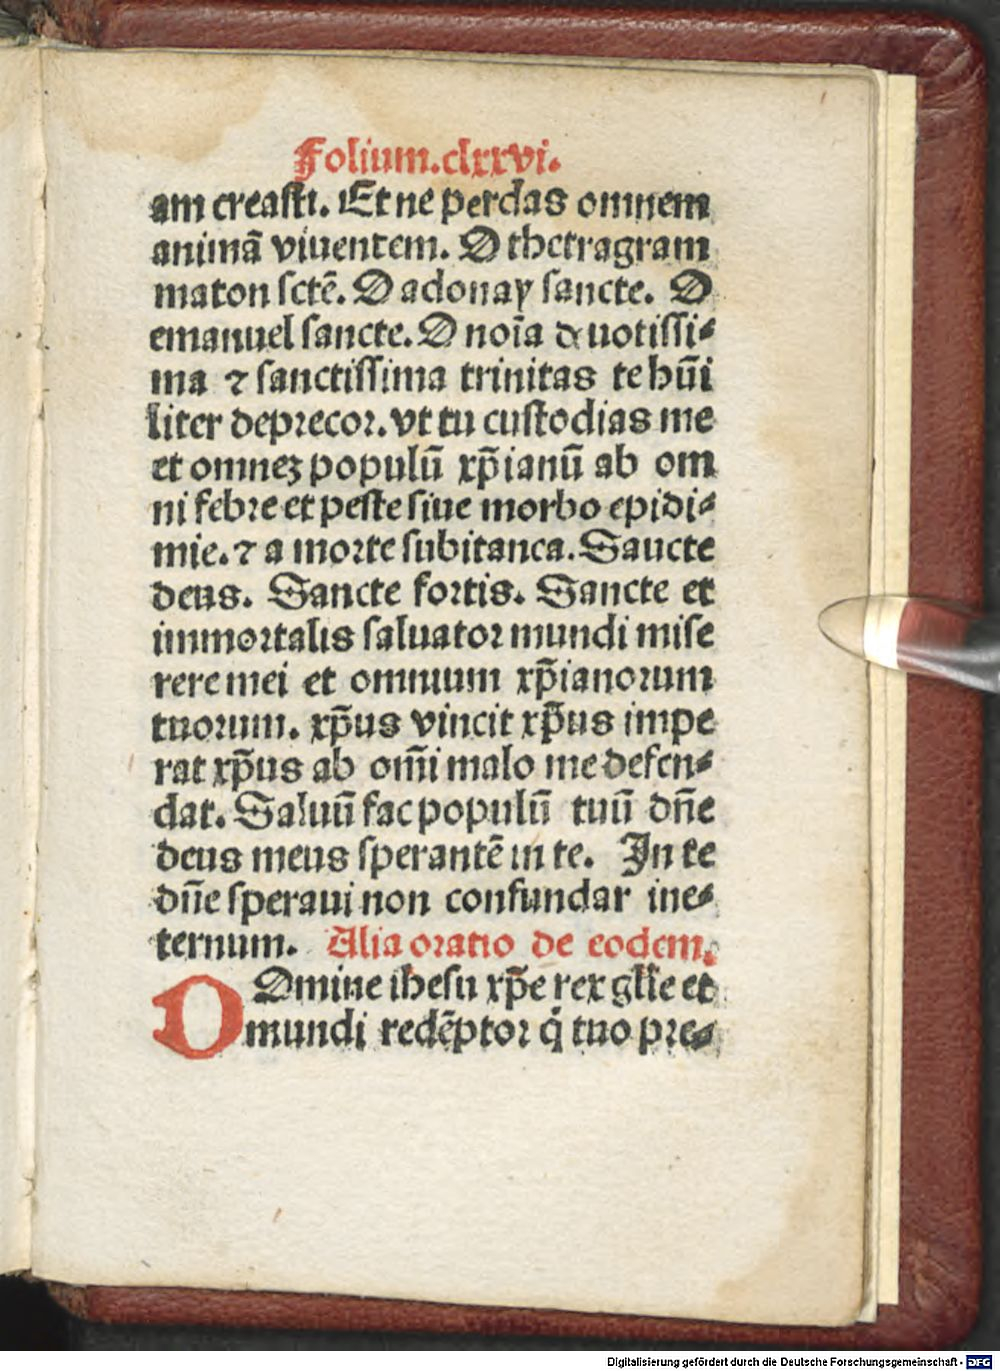 Folium.clxxvi.
am creasti. Et ne perdas omnem
animā viuentem. O thetragram
maton sctē. O adonay sancte. O
emanuel sancte. O noīa deuotissi⸗
ma ⁊ sanctissima trinitas te hūi
liter deprecor. vt tu custodias me
et omneʒ populū xp̄ianū ab om
ni febre et peste siue morbo epidi⸗
mie. ⁊ a morte subitanea. Sancte
deus. Sancte fortis. Sancte et
immortalis saluator mundi mise
rere mei et omnium xp̄ianorum
tuorum. xp̄us vincit xp̄us impe
rat xp̄us ab om̄i malo me defen⸗
dat. Saluū fac populū tuū dn̄e
deus meus sperantē in te. In te
dn̄e speraui non confundar ine⸗
ternum. Alia oratio de eodem.
DOmine ihesu xp̄e rex glīe et
mundi redēptor q̇ tuo pre⸗
Digitalisierung gefördert durch die Deutsche Forschungsgemeinschaft - DFG